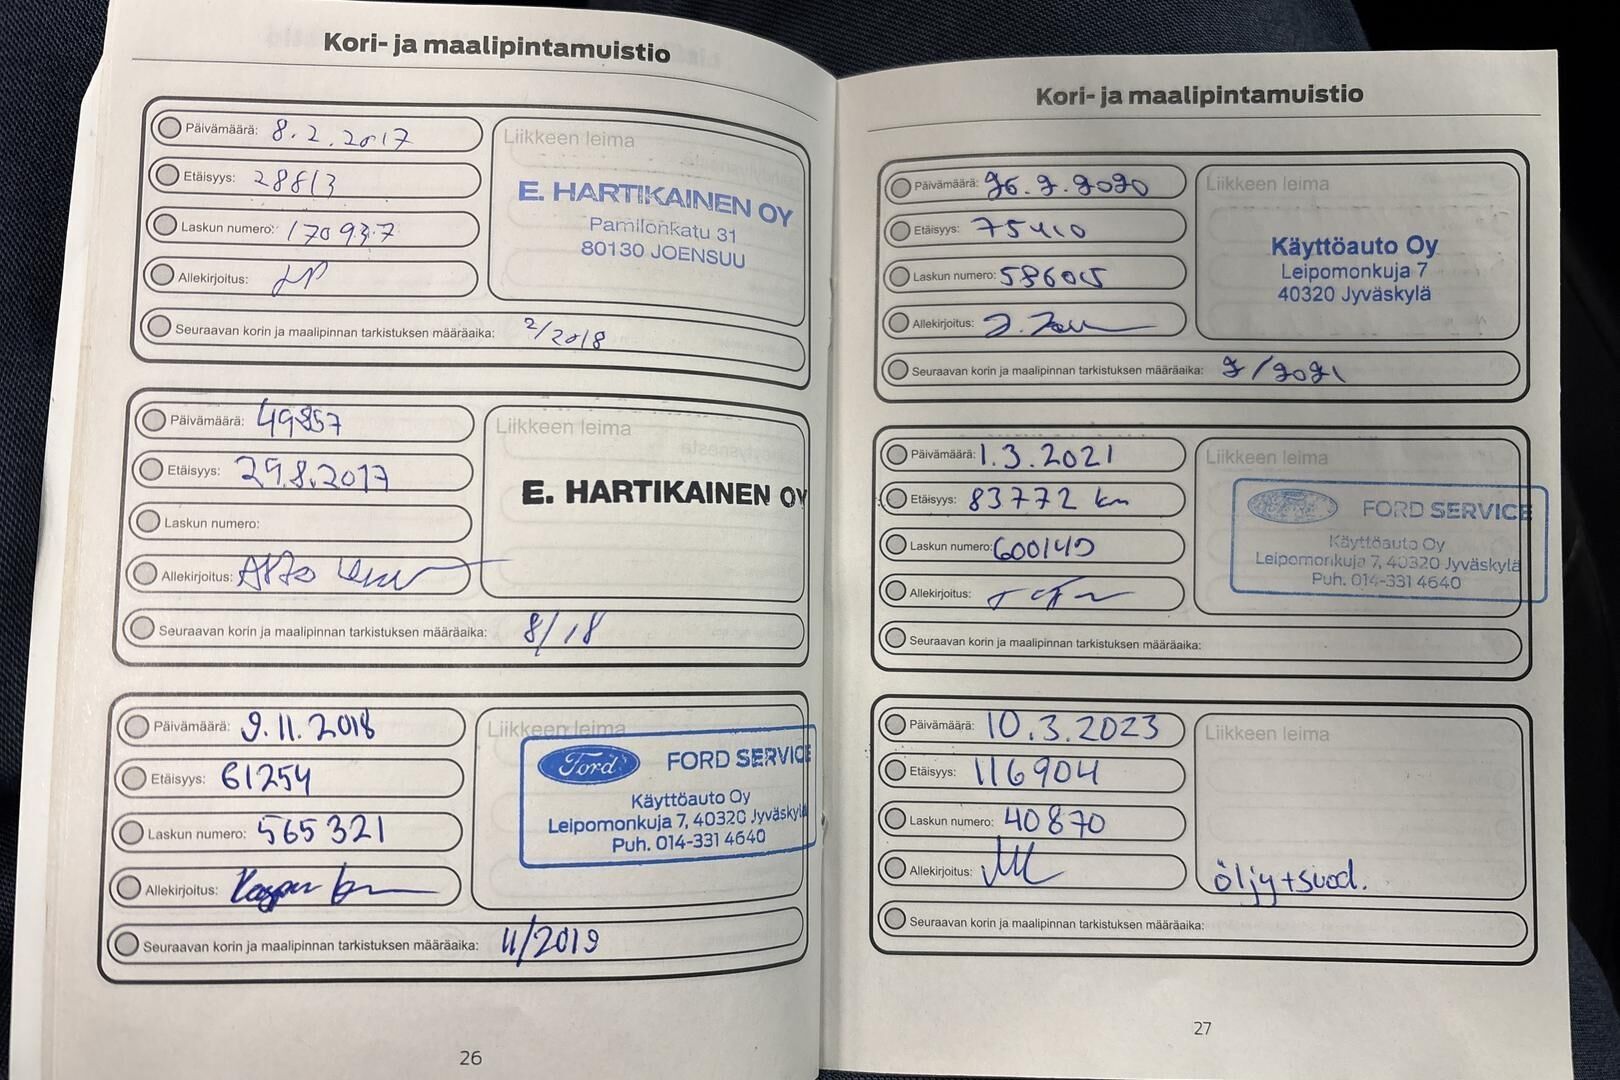 Kori- ja maalipintamuistio
Päivämäärä: 8.2.2017
Etäisyys: 28813
Laskun numero: 170937
Allekirjoitus:
Seuraavan korin ja maalipinnan tarkistuksen määräaika: 2/2018
Liikkeen leima
E. HARTIKAINEN OY
Pamilonkatu 31
80130 JOENSUU
Päivämäärä: 49857
Etäisyys: 29.8.2017
Laskun numero:
Allekirjoitus:
Seuraavan korin ja maalipinnan tarkistuksen määräaika: 8/18
Liikkeen leima
E. HARTIKAINEN OY
Päivämäärä: 9.11.2018
Etäisyys: 61254
Laskun numero: 565321
Allekirjoitus:
Seuraavan korin ja maalipinnan tarkistuksen määräaika: 11/2019
Liikkeen leima
Ford FORD SERVICE
Käyttöauto Oy
Leipomonkuja 7, 40320 Jyväskylä
Puh. 014-331 4640
26
Kori- ja maalipintamuistio
Päivämäärä: 26.2.2020
Etäisyys: 75410
Laskun numero: 586015
Allekirjoitus:
Seuraavan korin ja maalipinnan tarkistuksen määräaika: 2/2021
Liikkeen leima
Käyttöauto Oy
Leipomonkuja 7
40320 Jyväskylä
Päivämäärä: 1.3.2021
Etäisyys: 83772 km
Laskun numero: 600140
Allekirjoitus:
Seuraavan korin ja maalipinnan tarkistuksen määräaika:
Liikkeen leima
FORD SERVICE
Käyttöauto Oy
Leipomonkuja 7, 40320 Jyväskylä
Puh. 014-331 4640
Päivämäärä: 10.3.2023
Etäisyys: 116904
Laskun numero: 40870
Allekirjoitus:
Seuraavan korin ja maalipinnan tarkistuksen määräaika:
Liikkeen leima
öljy+suod.
27